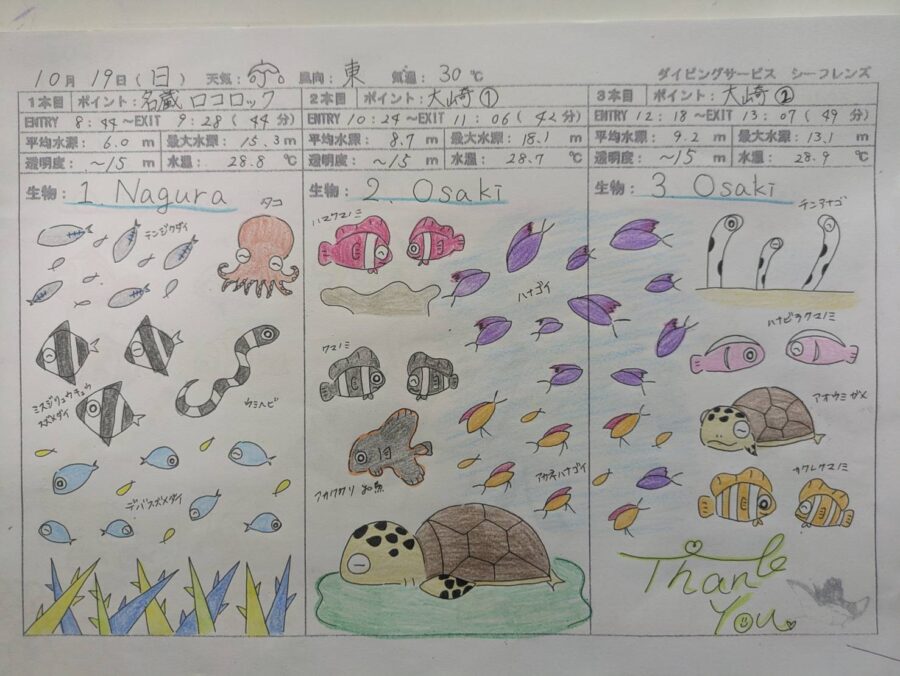 10月 19日(日) 天気: 風向: 東 気温: 30℃ ダイビングサービス シーフレンズ
1本目 ポイント: 名蔵ロコロック
ENTRY 8:44~EXIT 9:28(44分)
平均水深: 6.0 m 最大水深: 15.3m
透明度: ~15 m 水温: 28.8 ℃
生物: 1. Nagura
タコ
テンジクダイ
ミスジリュウキュウ
スズメダイ
ウミヘビ
デバスズメダイ
2本目 ポイント: 大崎①
ENTRY 10:24~EXIT 11:06(42分)
平均水深: 8.7 m 最大水深: 18.1m
透明度: ~15 m 水温: 28.7 ℃
生物: 2. Osaki
ハマクマノミ
ハナゴイ
クマノミ
アカククリ 幼魚
アカネハナゴイ
3本目 ポイント: 大崎②
ENTRY 12:18~EXIT 13:07(49分)
平均水深: 9.2 m 最大水深: 13.1m
透明度: ~15 m 水温: 28.9 ℃
生物: 3. Osaki
チンアナゴ
ハナビラクマノミ
アオウミガメ
カクレクマノミ
Thank
You